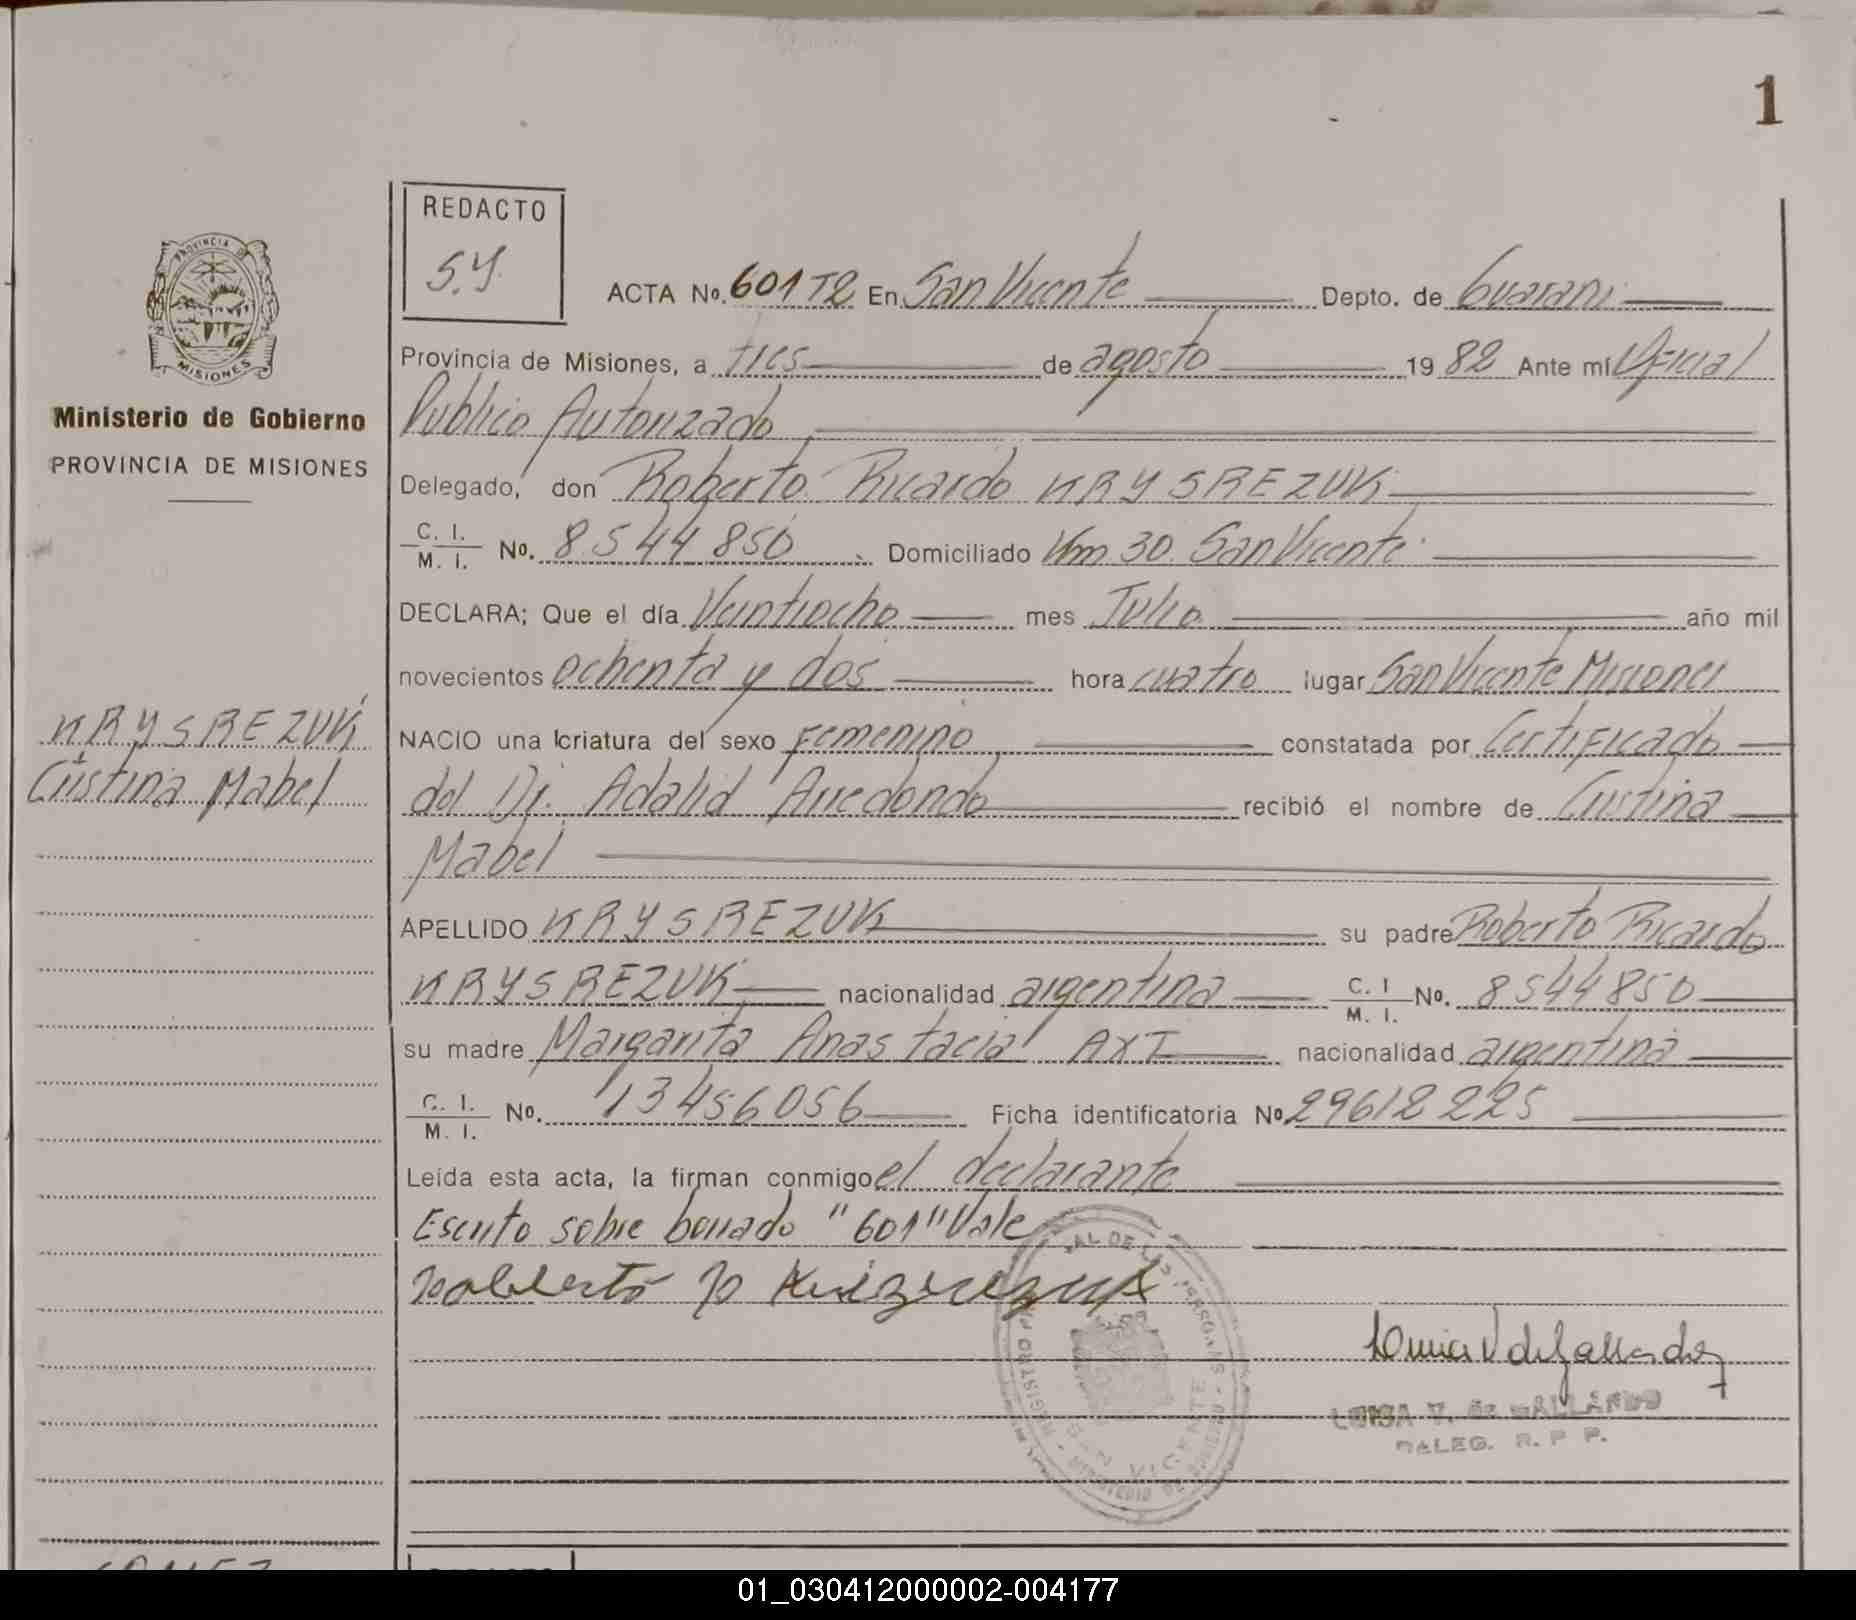 1
REDACTO
S.Y.
ACTA No. 601 T2 En San Vicente Depto. de Guaraní
Provincia de Misiones, a tres de agosto 1982 Ante mí Oficial
Publico Autorizado
Delegado, don Roberto Ricardo KRYSREZUK
C. I.
M. I. No. 8544850 Domiciliado Km 30. San Vicente
DECLARA; Que el día Veintiocho mes Julio año mil
novecientos ochenta y dos hora cuatro lugar San Vicente Misiones
NACIO una criatura del sexo Femenino constatada por Certificado
del Dr. Adalid Arredondo recibió el nombre de Cristina
Mabel
APELLIDO KRYSREZUK su padre Roberto Ricardo
KRYSREZUK nacionalidad argentina C. I
M. I. No. 8544850
su madre Margarita Anastacia AXT nacionalidad argentina
C. I.
M. I. No. 13456056 Ficha identificatoria No. 29612225
Leída esta acta, la firman conmigo el declarante
Escrito sobre borrado "601" Vale
PROVINCIA DE
MISIONES
Ministerio de Gobierno
PROVINCIA DE MISIONES
KRYSREZUK
Cristina Mabel
LUISA V. de GALLARDO
DELEG. R. P. P.
SAN VICENTE
01_030412000002-004177